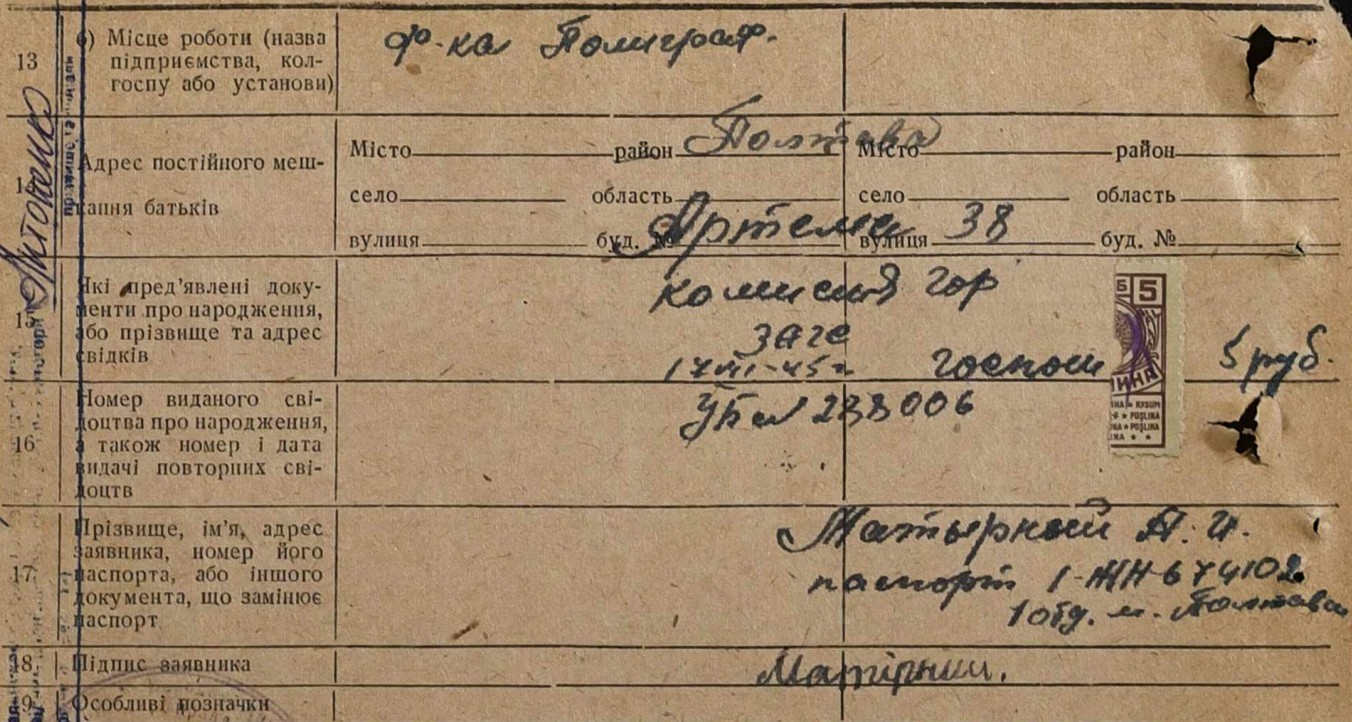 13 б) Місце роботи (назва
підприємства, кол-
госпу або установи)
ф-ка Полиграф.
Адрес постійного меш-
кання батьків
Місто район Полтава Місто район
село область село область
вулиця буд. № Артема вулиця 38 буд. №
15 Які пред’явлені доку-
менти про народження,
або прізвище та адрес
свідків
комисия гор
загс
госпош 5 руб.
5
16 Номер виданого сві-
доцтва про народження,
а також номер і дата
видачі повторних сві-
доцтв
238006
17 Прізвище, ім’я, адрес
заявника, номер його
паспорта, або іншого
документа, що замінює
паспорт
Матырный П. И.
паспорт 1-ЖН-674102
1 отд. м. Полтава
18 Підпис заявника
Матірний.
19 Особливі позначки